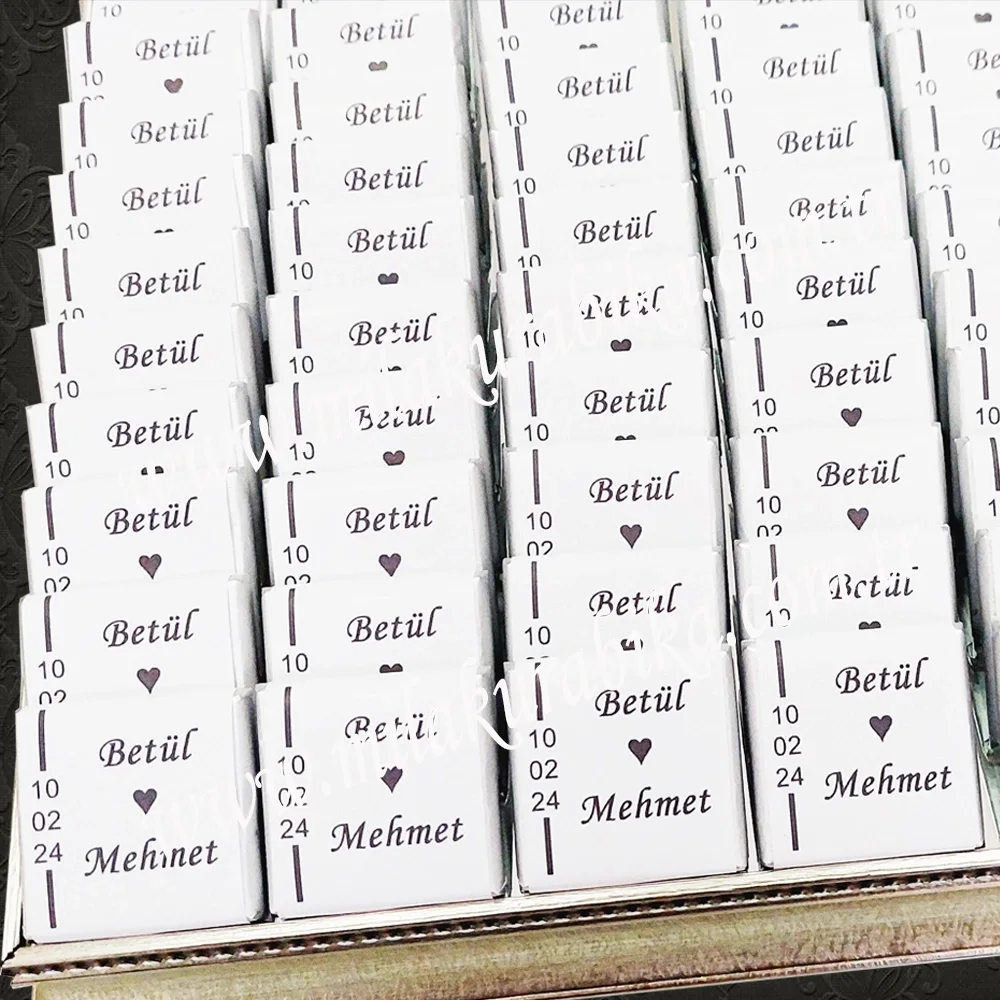 Betül
10
02
24
Mehmet
Betül
10
02
24
Mehmet
Betül
10
02
24
Mehmet
Betül
10
02
24
Mehmet
www.milakurabika.com.tr
www.milakurabika.com.tr